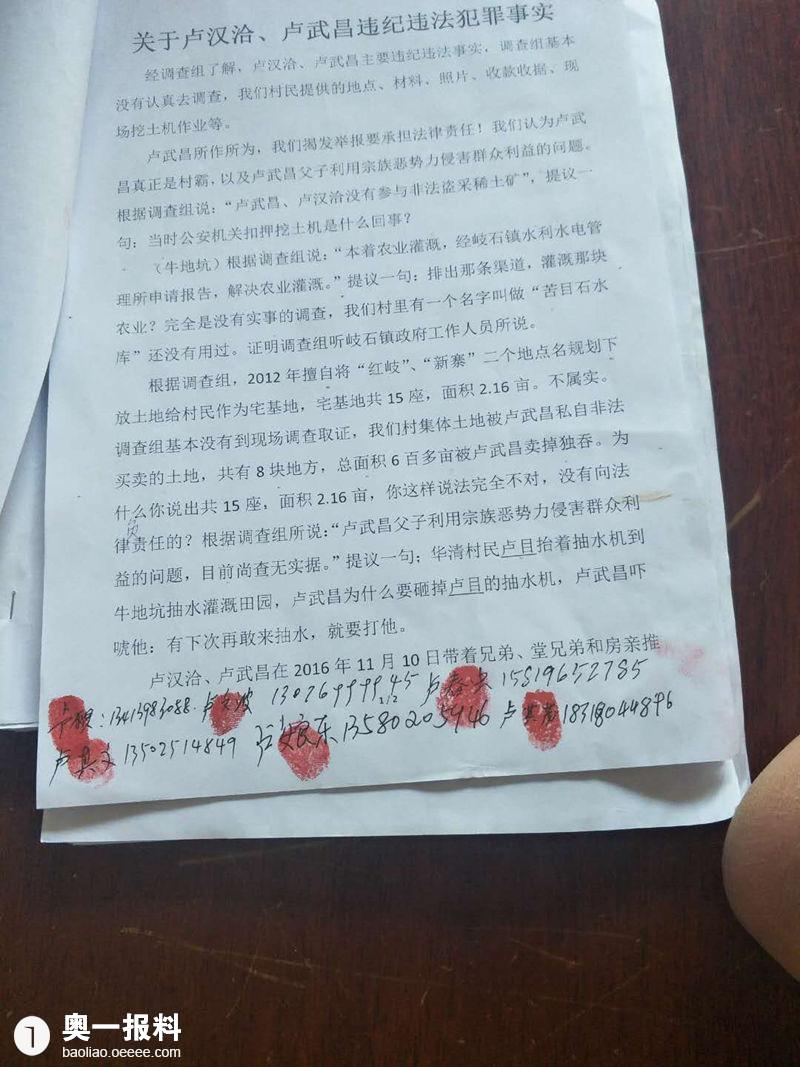 关于卢汉治、卢武昌违纪违法犯罪事实
经调查组了解，卢汉治、卢武昌主要违纪违法事实，调查组基本
没有认真去调查，我们村民提供的地点、材料、照片、收款收据、现
场挖土机作业等。
卢武昌所作所为，我们揭发举报要承担法律责任！我们认为卢武
昌真正是村霸，以及卢武昌父子利用宗族恶势力侵害群众利益的问题。
根据调查组说：“卢武昌、卢汉治没有参与非法盗采稀土矿”，提议一
句：当时公安机关扣押挖土机是什么回事？
（牛地坑）根据调查组说：“本着农业灌溉，经岐石镇水利水电管
理所申请报告，解决农业灌溉。”提议一句：排出那条渠道，灌溉那块
农业？完全是没有实事的调查，我们村里有一个名字叫做“苦目石水
库”还没有用过。证明调查组听岐石镇政府工作人员所说。
根据调查组，2012年擅自将“红岐”、“新寨”二个地点名规划下
放土地给村民作为宅基地，宅基地共15座，面积2.16亩。不属实。
调查组基本没有到现场调查取证，我们村集体土地被卢武昌私自非法
买卖的土地，共有8块地方，总面积6百多亩被卢武昌卖掉独吞。为
什么你说出共15座，面积2.16亩，你这样说法完全不对，没有向法
律责任的？根据调查组所说：“卢武昌父子利用宗族恶势力侵害群众利
益的问题，目前尚查无实据。”提议一句；华清村民卢目抬着抽水机到
牛地坑抽水灌溉田园，卢武昌为什么要砸掉卢目的抽水机，卢武昌吓
唬他：有下次再敢来抽水，就要打他。
卢汉治、卢武昌在2016年11月10日带着兄弟、堂兄弟和房亲推
13413983088 卢 波 13076999945 卢春 15819652785
卢 13502514849 卢 东 13580205946 卢 18318044896
1 奥一报料
baoliao.oeeee.com